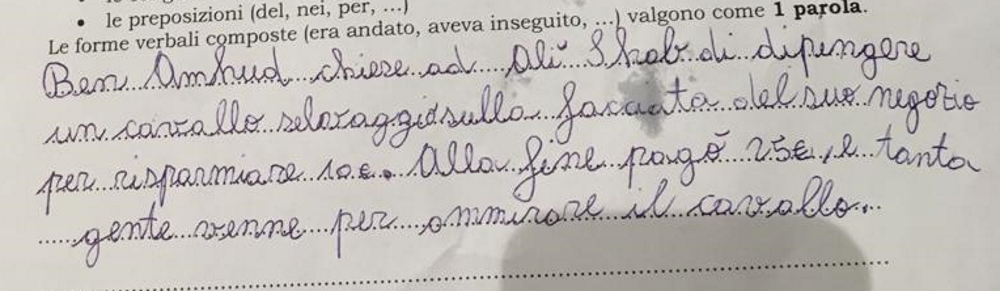 • le preposizioni (del, nei, per, ...)
Le forme verbali composte (era andato, aveva inseguito, ...) valgono come 1 parola.
Ben Amhud chiese ad Alì Skab di dipingere
un cavallo selvaggio sulla facciata del suo negozio
per risparmiare 10€. Alla fine pagò 25€, e tanta
gente venne per ammirare il cavallo.